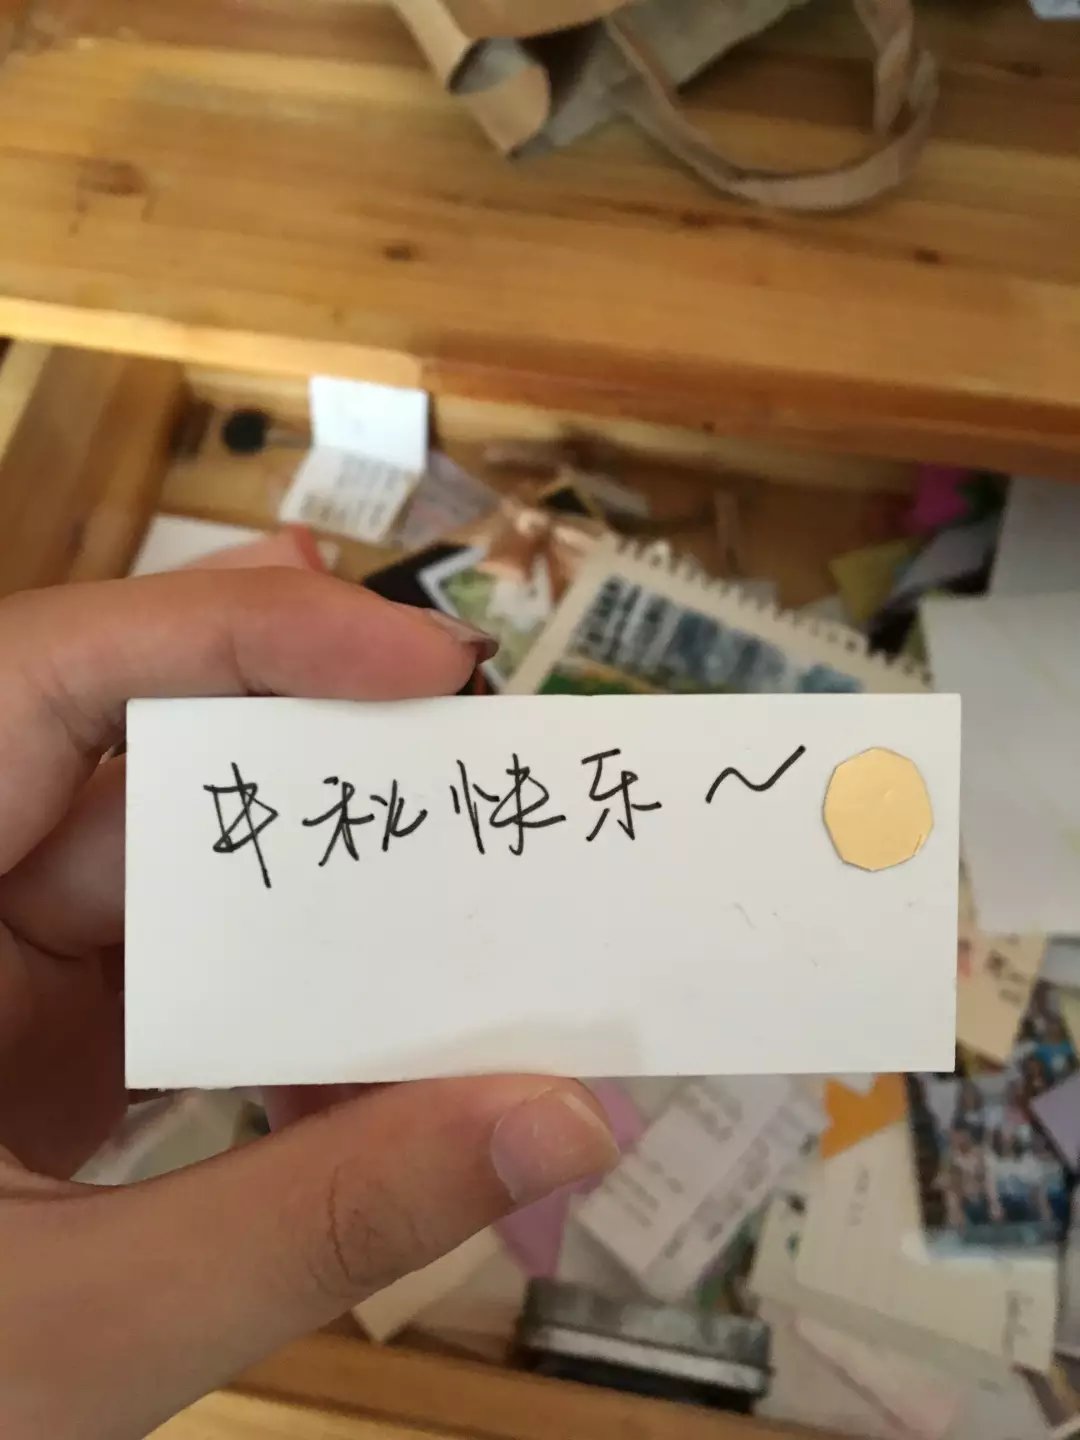 中秋快乐~